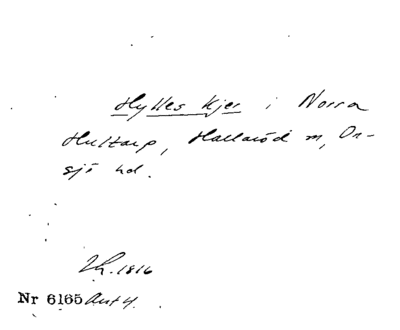 Hylles kjer i Norra
Hultarp, Hallaröd sn, On-
sjö hd.
Lh. 1816
Nr 6165 Akt 4.